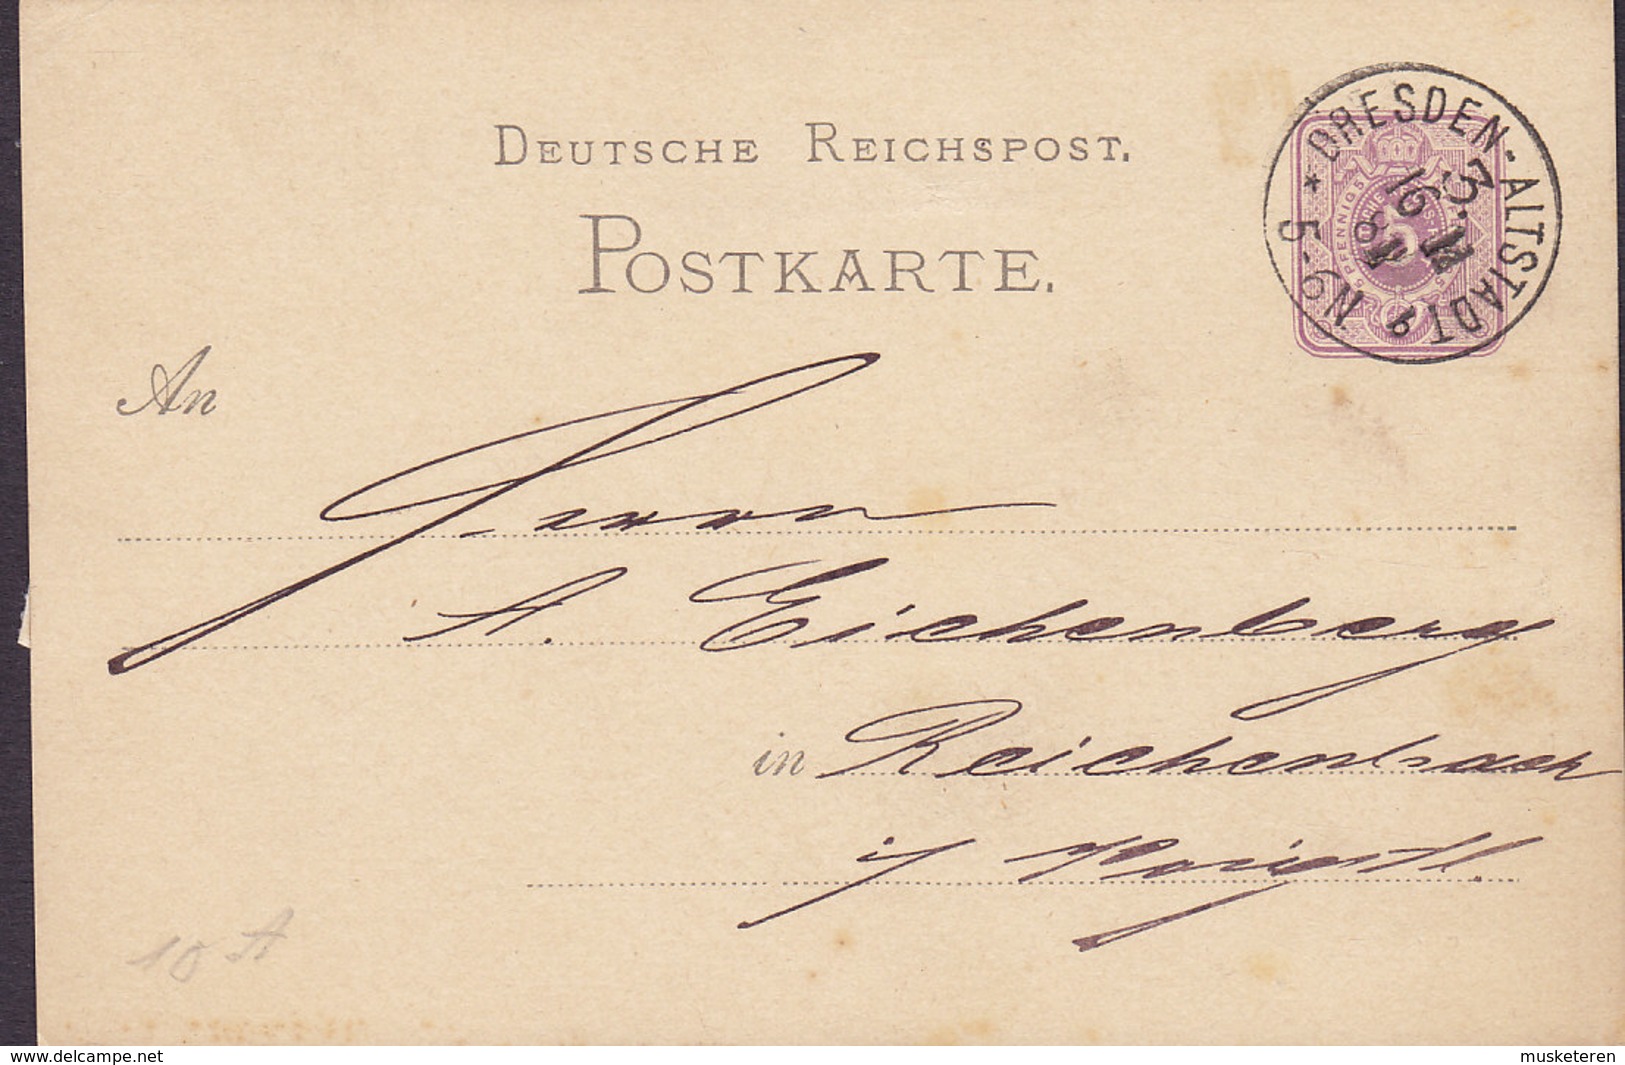 DEUTSCHE REICHSPOST.
POSTKARTE.
* DRESDEN-ALTSTADT
16
5-6N
5 PFENNIG
An
Herrn
A. Eichenberg
in Reichenbach
i/ Voigtl.
10 A
www.delcampe.net
musketeren